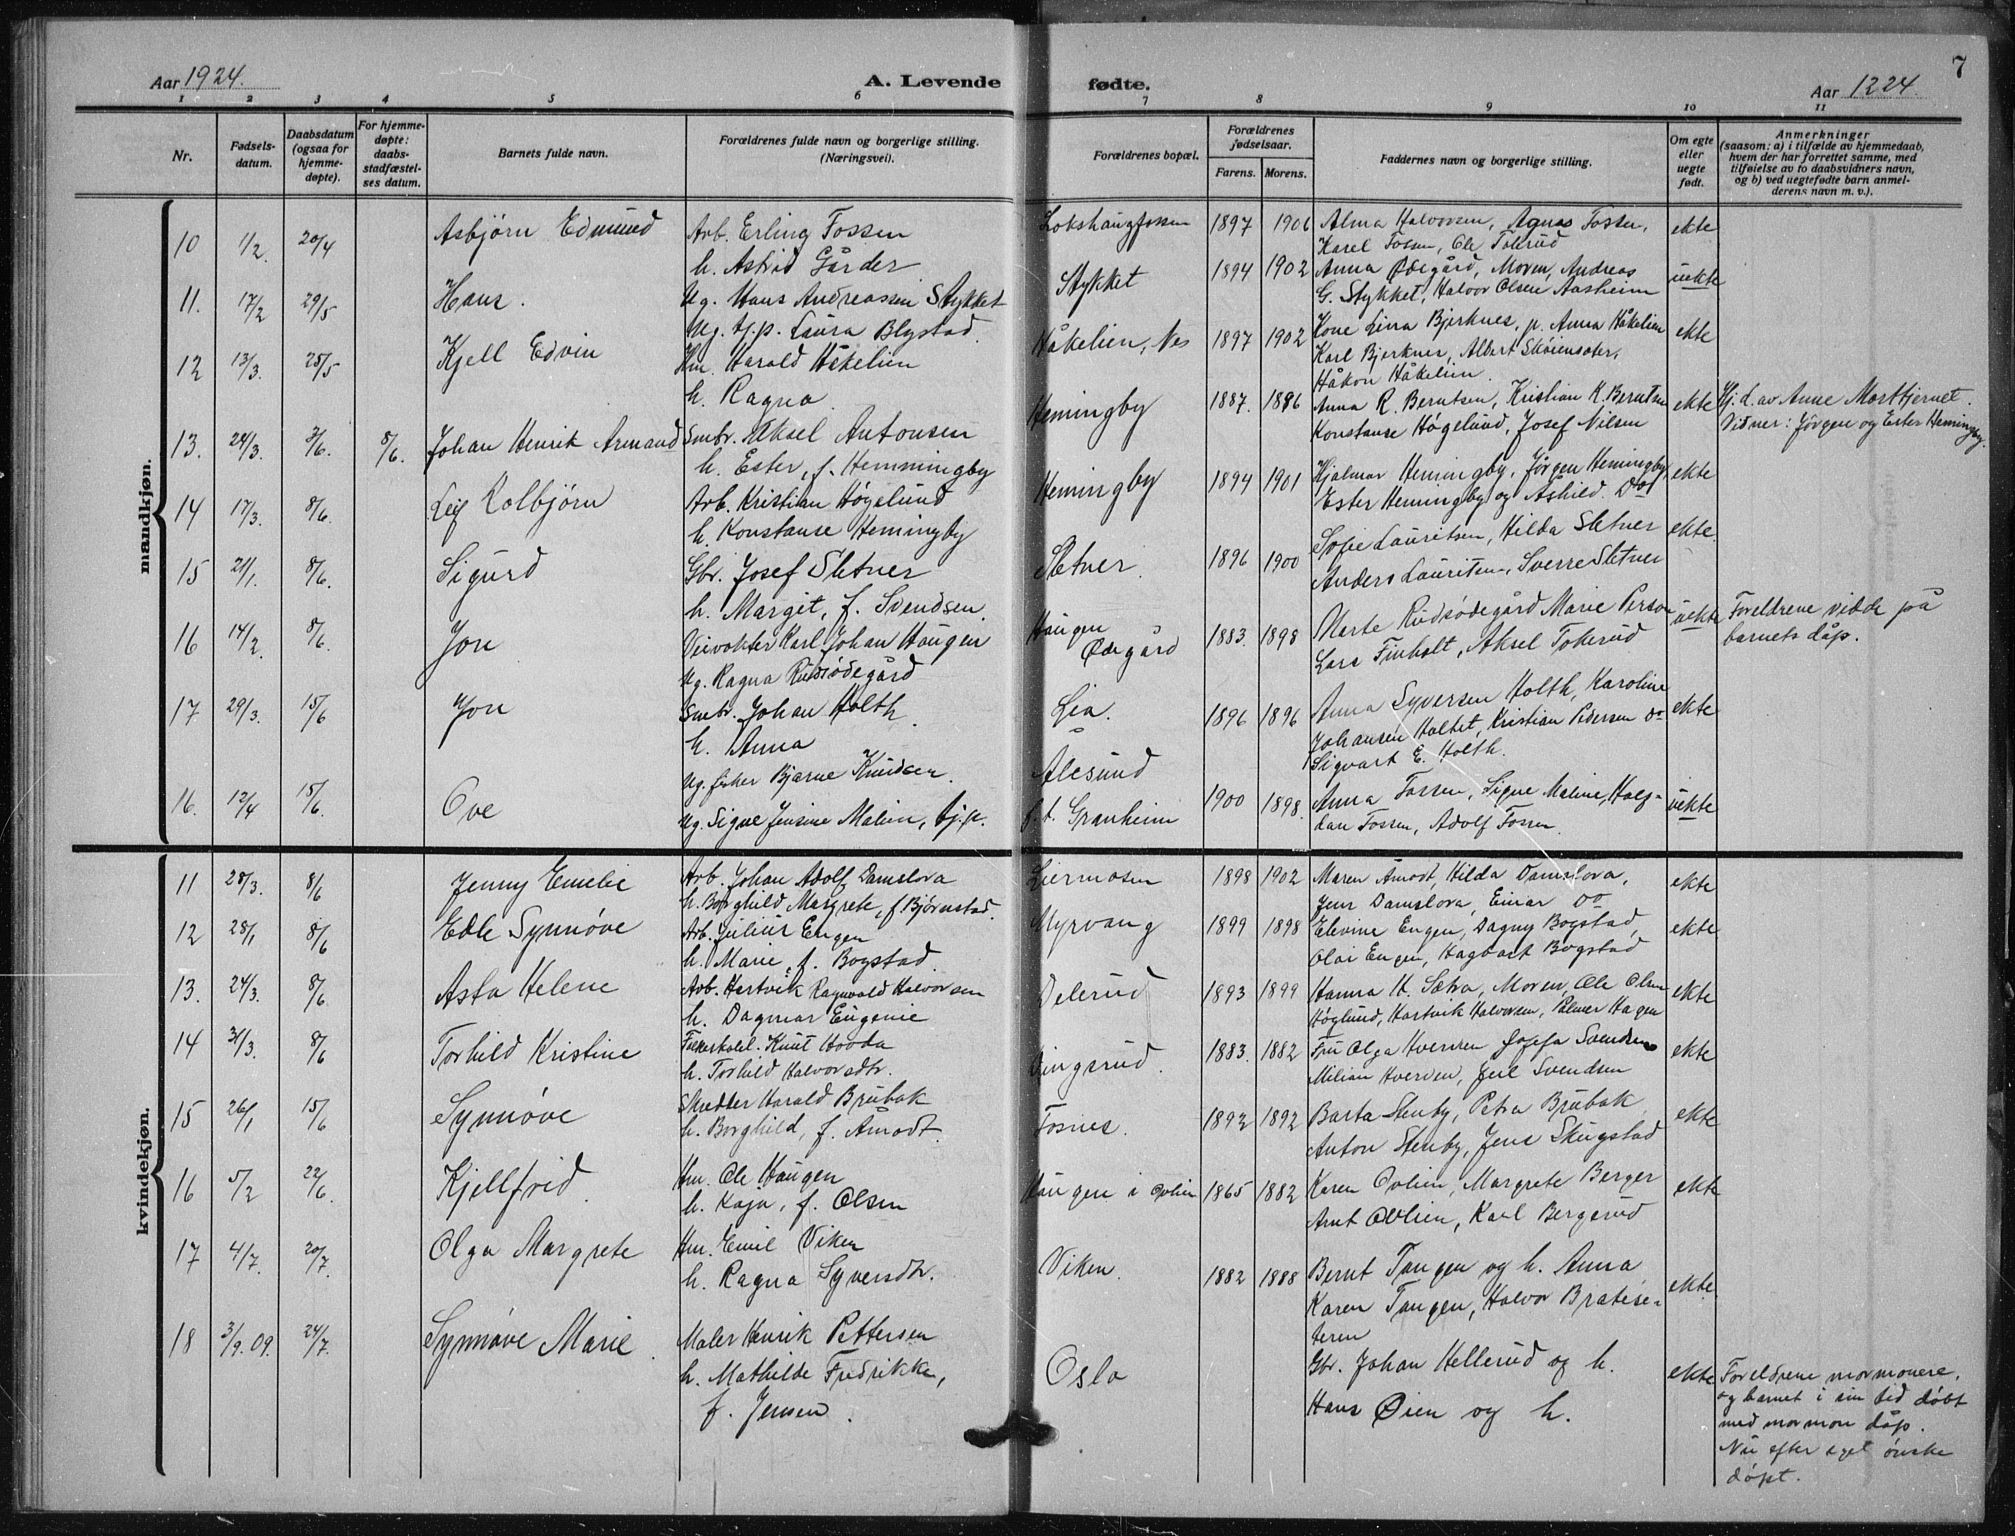 7
Aar 1924. A. Levende fødte. Aar 1224.
1 2 3 4 5 6 7 8 9 10 11
Nr.
Fødsels-
datum.
Daabsdatum
(ogsaa for
hjemme-
døpte).
For hjemme-
døpte:
daabs-
stadfæstel-
ses datum.
Barnets fulde navn.
Forældrenes fulde navn og borgerlige stilling.
(Næringsvei).
Forældrenes bopæl.
Forældrenes
fødselsaar.
Farens. Morens.
Faddernes navn og borgerlige stilling.
Om egte
eller
uegte
født.
Anmerkninger
(saasom: a) i tilfælde av hjemmedaab,
hvem der har forrettet samme, med
tilføielse av to daabsvidners navn,
og b) ved uegtefødte barn anmel-
derens navn m. v.).
mandkjøn.
10 1/2. 20/4 Asbjørn Edmund Arb. Erling Fossen Lokshaugfossen 1897 1906 Alma Halvorsen, Agnes Fossen, ekte
h. Astrid Gårder Karel Fossen, Ole Tokerud
11. 17/2 29/5 Hans. Ug. Hans Andreassen Stykket Stykket 1894 1902 Anna Ødegård, Moren, Andreas uekte
Ug. tj.p. Laura Blystad. G. Stykket, Halvor Olsen Aasheim
12 13/3. 25/5 Kjell Edvin Hm. Harald Håkelien Håkelien, Nes 1897 1902 Kone Lina Bjerknes, p. Anna Håkelien ekte
h. Ragna. Karl Bjerknes, Albert Skoiensæter,
Håkon Håkelien.
13. 24/3. 3/6. 8/6. Johan Henrik Armand Smbr. Aksel Antonsen Hemingby 1887. 1886 Anna R. Berntsen, Kristian K. Berntsen ekte Hj.d. av Anne Mortbjernet.
h. Ester, f. Hemmingby Konstanse Høgelund, Josef Nilsen Vidner: Jørgen og Ester Hemingby.
14 17/3. 8/6. Leif Kolbjørn Arb. Kristian Høgelund Hemingby 1894 1901 Hjalmar Hemingby, Jørgen Hemingby, ekte
h. Konstanse Hemingby Ester Hemingby og Åshild Do
15 21/1. 8/6. Sigurd Gbr. Josef Sletner Sletner. 1896 1900 Sofie Lauritsen, Hilda Sletner ekte.
h. Margit, f. Svendsen. Anders Lauritsen, Sverre Sletner
16 14/2. 8/6. Jon Veivokter Karl Johan Haugen Haugen 1883. 1898 Marte Rudsødegård Marie Person uekte Foreldrene vidde på
Ug. Ragna Rudsødegård Ødegård Lars Finholt, Aksel Tokerud barnets dåp.
17 29/3. 15/6 Jon Smbr. Johan Holth. Lia. 1896 1896 Anna Syversen Holth, Karoline ekte
h. Anna Johansen Holtet, Kristian Pedersen do
Sigvart E. Holth.
16. 12/4 15/6. Ove Ug. fisker Bjarne Knudsen. Ålesund 1900 1898. Anna Fossen, Signe Malene, Half- uekte
Ug. Signe Jensine Malen, tj.p. f. t. Granheim dan Fossen, Adolf Fossen.
kvindekjøn.
11 28/3. 8/6 Jenny Emelie Arb. Johan Adolf Damslora Liermosen 1898 1902 Maren Åmodt, Hilda Damslora, ekte
h. Borghild Margrete, f Bjørnstad. Jens Damslora, Einar do
12 28/1 8/6 Edle Synnøve Arb. Julius Engen Myrvang 1899 1898 Elevine Engen, Dagny Bogstad, ekte
h. Marie, f. Bogstad. Olai Engen, Hagbart Bogstad
13. 24/3. 8/6. Asta Helene Arb. Hartvik Ragnvald Halvorsen Delerud 1893 1899 Hanna H. Sætra, Moren, Ole Olsen ekte
h. Dagmar Eugenie Høglund, Hartvik Halvorsen, Palmer Hagen
14 31/3. 8/6 Torhild Kristine Knut Hovda Vingsrud. 1883. 1882 Fru Olga Hverven Josefa Svendsen ekte
h. Torhild Halvorsdtr. Milian Hverven, Jeil Svendsen
15 26/1 15/6 Synnøve Harald Brubak Fosnes. 1892 1892 Barta Stenby, Petra Brubak, ekte
h. Borghild, f. Åmodt. Anton Stenby, Jens Skugstad
16 5/2 22/6. Kjellfrid. Hm. Ole Haugen Haugen i Ovlien 1865 1882 Karen Ovlien, Margrete Berger ekte
h. Kaja, f. Olsen Arnt Ovlien, Karl Bergsrud
17 4/7. 20/7. Olga Margrete Hm. Emil Viken Viken. 1882 1888 Bernt Tangen og h. Anna ekte.
h. Ragna Syversdtr. Karen Tangen, Halvor Bratese-
teren
18 3/9.09. 24/7. Synnøve Marie. Maler Henrik Pettersen Oslo Gbr. Johan Hellerud og h. ekte Foreldrene mormonere,
h. Mathilde Fredrikke, Hans Øien og h. og barnet i sin tid døbt
f. Jensen. med mormon dåp.
Nu efter eget ønske
døpt.